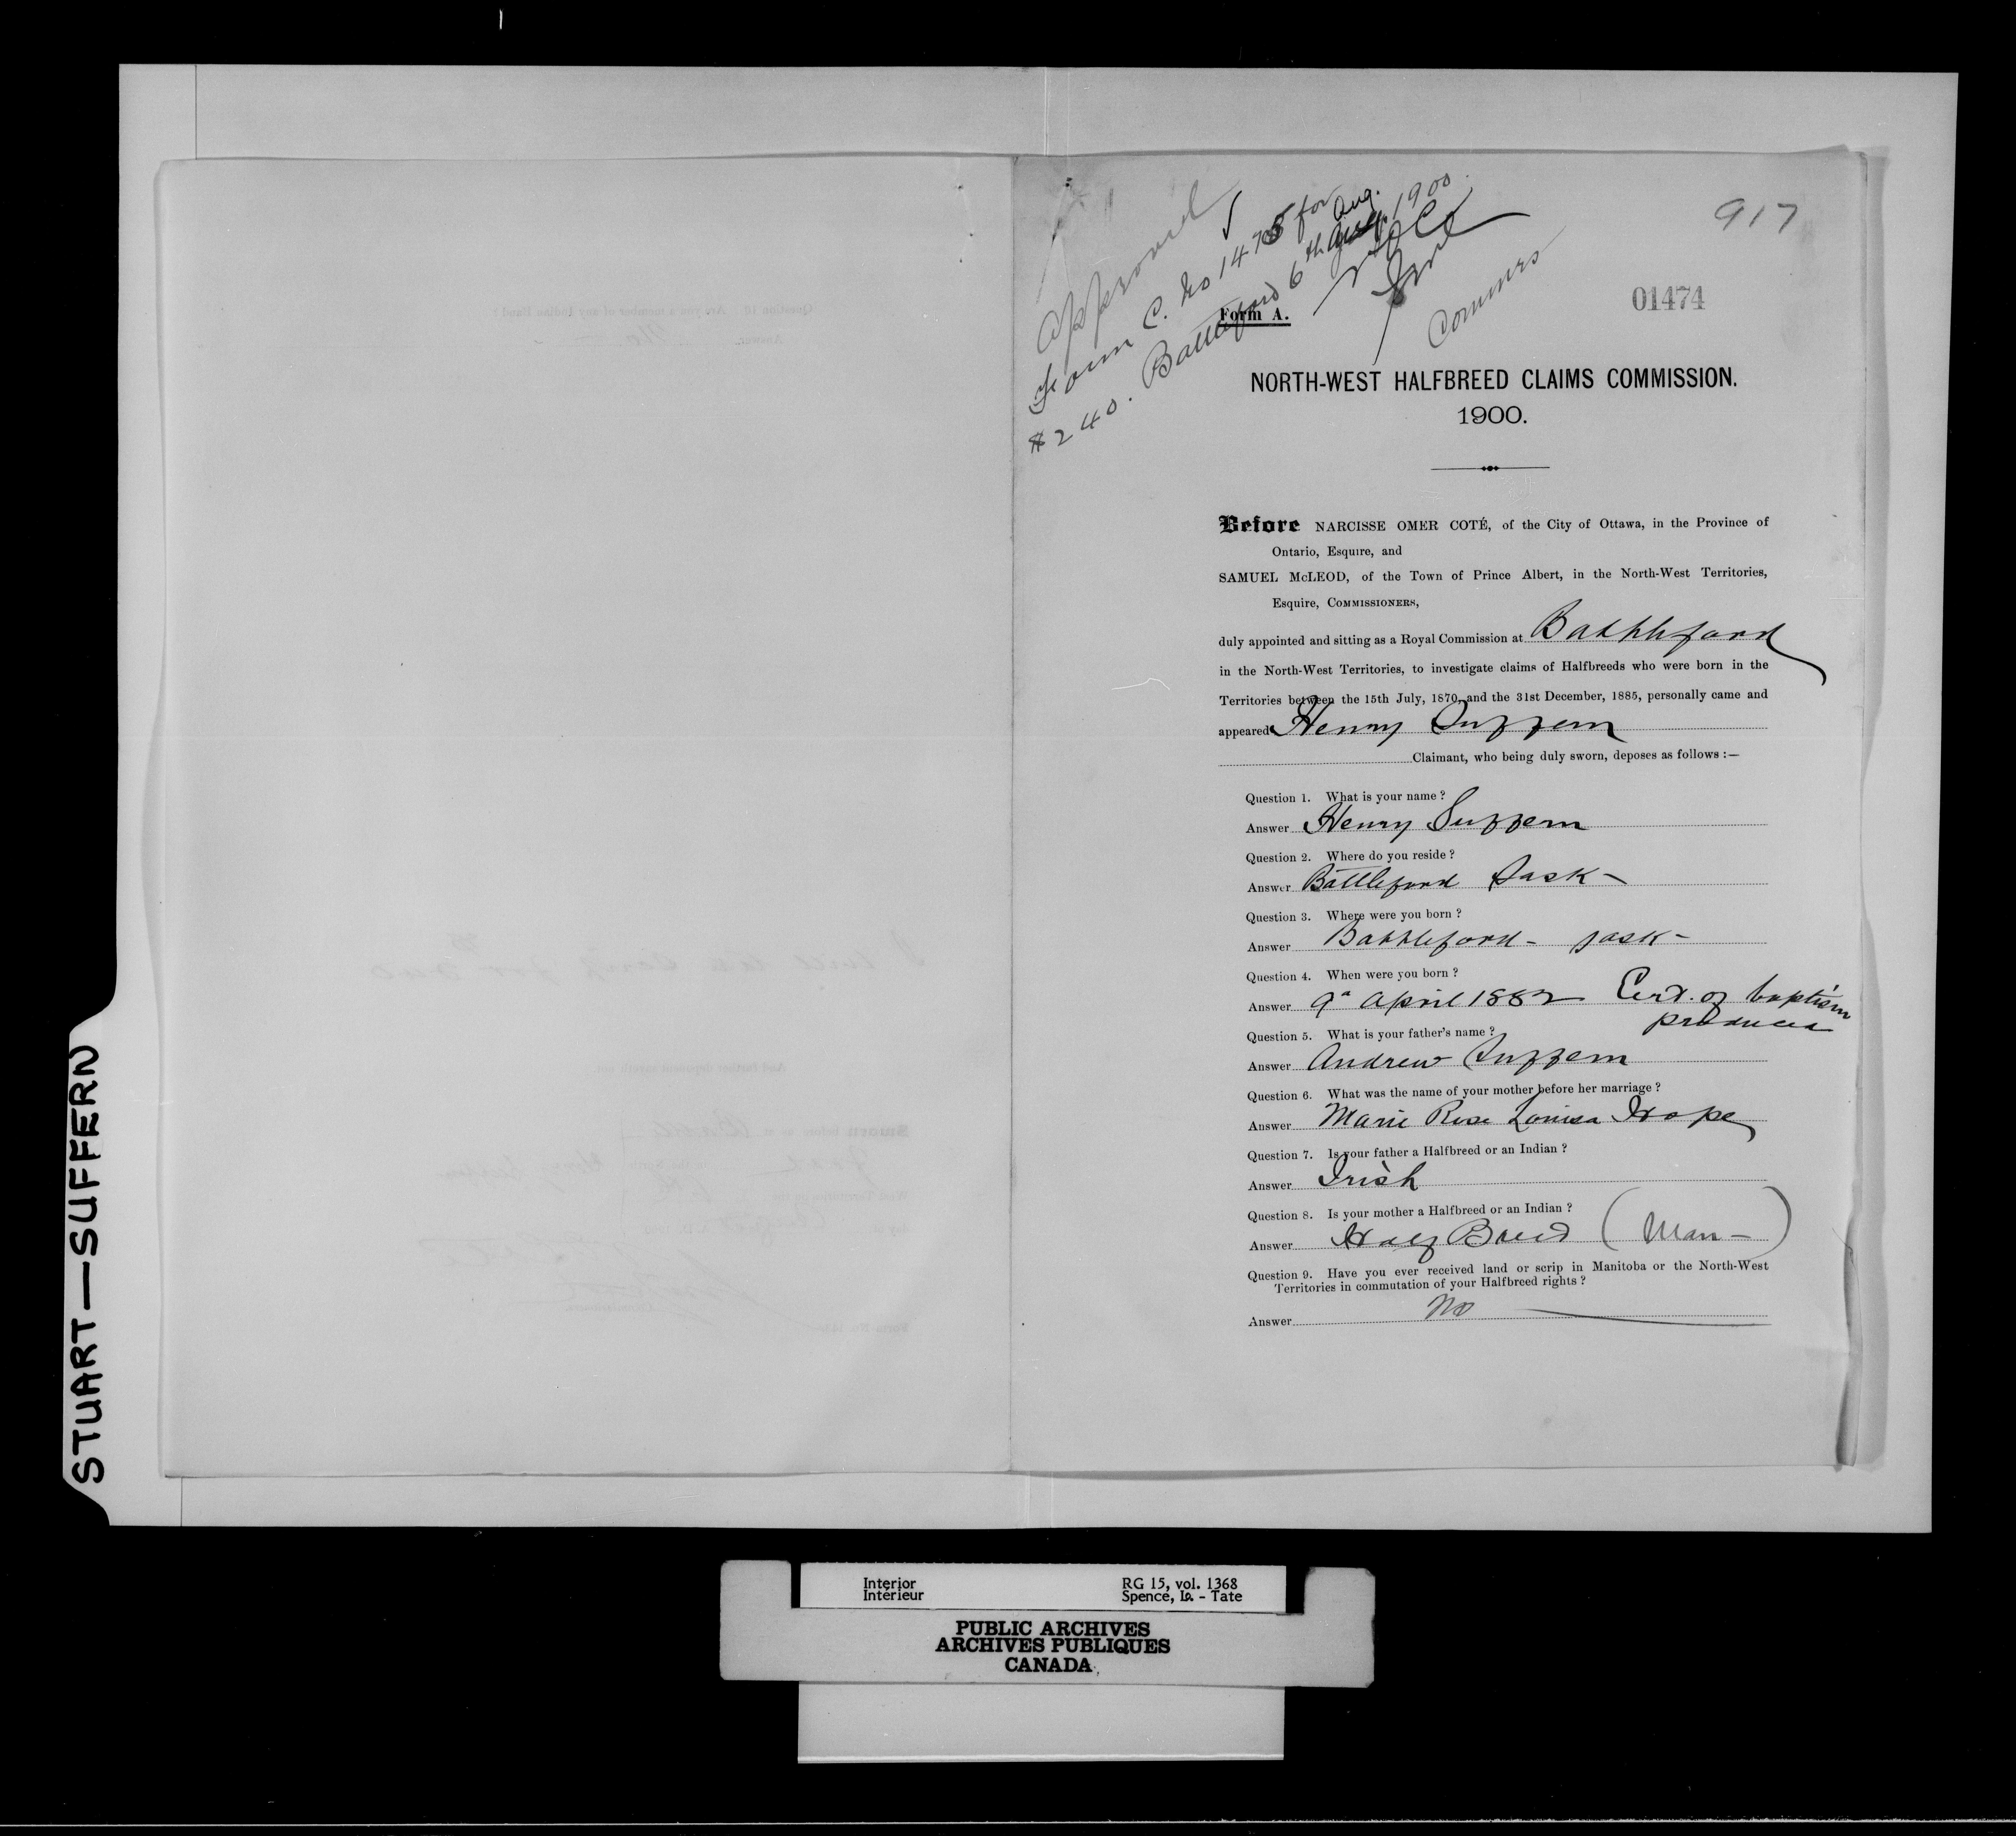 Approved
Form C. No 1475 for
$240. Battleford 6th Aug. 1900
Commrs
917
01474
Form A.
NORTH-WEST HALFBREED CLAIMS COMMISSION.
1900.
Before NARCISSE OMER COTÉ, of the City of Ottawa, in the Province of
Ontario, Esquire, and
SAMUEL McLEOD, of the Town of Prince Albert, in the North-West Territories,
Esquire, COMMISSIONERS,
duly appointed and sitting as a Royal Commission at Battleford
in the North-West Territories, to investigate claims of Halfbreeds who were born in the
Territories between the 15th July, 1870, and the 31st December, 1885, personally came and
appeared Henry Suffern
Claimant, who being duly sworn, deposes as follows :—
Question 1. What is your name ?
Answer Henry Suffern
Question 2. Where do you reside ?
Answer Battleford Sask -
Question 3. Where were you born ?
Answer Battleford - Sask -
Question 4. When were you born ?
Answer 9th April 1882 Cert. of baptism
produced
Question 5. What is your father's name ?
Answer Andrew Suffern
Question 6. What was the name of your mother before her marriage ?
Answer Marie Rose Louisa Hope
Question 7. Is your father a Halfbreed or an Indian ?
Answer Irish
Question 8. Is your mother a Halfbreed or an Indian ?
Answer Half Breed (Man-)
Question 9. Have you ever received land or scrip in Manitoba or the North-West
Territories in commutation of your Halfbreed rights ?
Answer No
STUART—SUFFERN
Interior
Intérieur
RG 15, vol. 1368
Spence, Lo. - Tate
PUBLIC ARCHIVES
ARCHIVES PUBLIQUES
CANADA